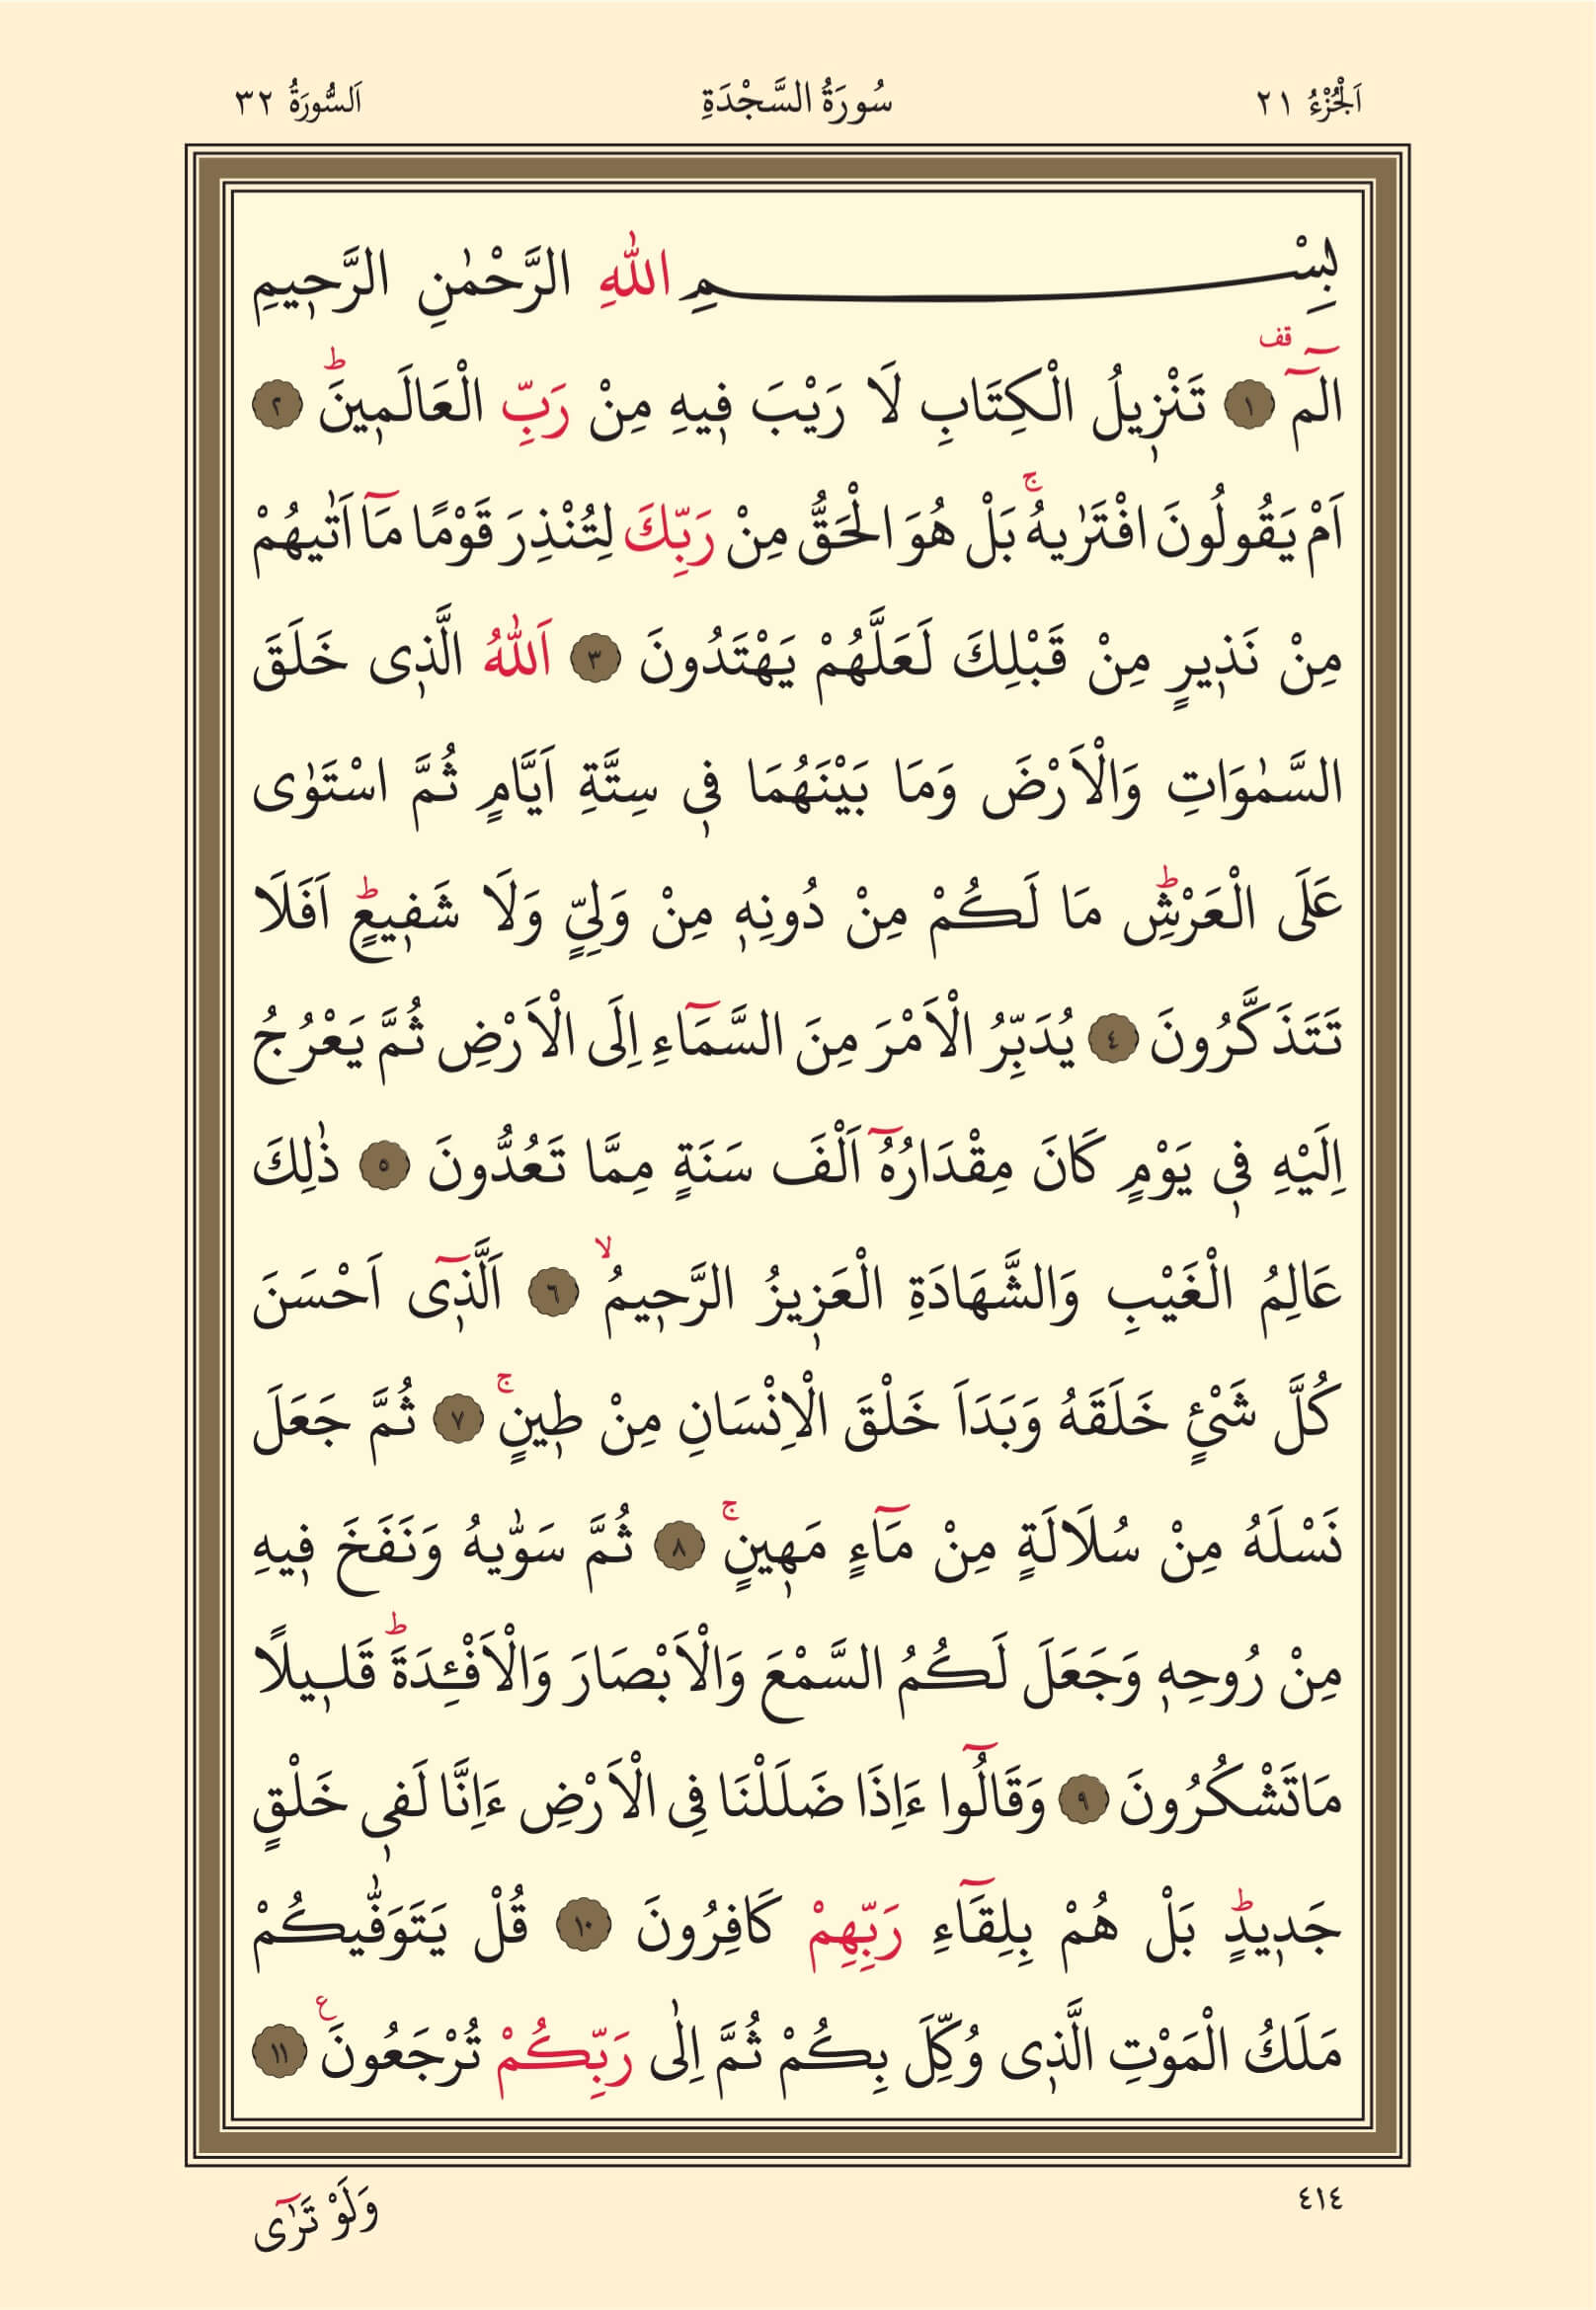 اَلْجُزْءُ ٢١ سُورَةُ السَّجْدَةِ اَلسُّورَةُ ٣٢
بِسْمِ اللّٰهِ الرَّحْمٰنِ الرَّحٖيمِ
الٓمٓ ۚقف ﴿١﴾ تَنْزٖيلُ الْكِتَابِ لَا رَيْبَ فٖيهِ مِنْ رَبِّ الْعَالَمٖينَؕ ﴿٢﴾
اَمْ يَقُولُونَ افْتَرٰيهُۚ بَلْ هُوَ الْحَقُّ مِنْ رَبِّكَ لِتُنْذِرَ قَوْمًا مَٓا اَتٰيهُمْ
مِنْ نَذٖيرٍ مِنْ قَبْلِكَ لَعَلَّهُمْ يَهْتَدُونَ ﴿٣﴾ اَللّٰهُ الَّذٖى خَلَقَ
السَّمٰوَاتِ وَالْاَرْضَ وَمَا بَيْنَهُمَا فٖى سِتَّةِ اَيَّامٍ ثُمَّ اسْتَوٰى
عَلَى الْعَرْشِؕ مَا لَكُمْ مِنْ دُونِهٖ مِنْ وَلِيٍّ وَلَا شَفٖيعٍؕ اَفَلَا
تَتَذَكَّرُونَ ﴿٤﴾ يُدَبِّرُ الْاَمْرَ مِنَ السَّمَٓاءِ اِلَى الْاَرْضِ ثُمَّ يَعْرُجُ
اِلَيْهِ فٖى يَوْمٍ كَانَ مِقْدَارُهُٓ اَلْفَ سَنَةٍ مِمَّا تَعُدُّونَ ﴿٥﴾ ذٰلِكَ
عَالِمُ الْغَيْبِ وَالشَّهَادَةِ الْعَزٖيزُ الرَّحٖيمُۙ ﴿٦﴾ اَلَّذٖٓى اَحْسَنَ
كُلَّ شَیْءٍ خَلَقَهُ وَبَدَاَ خَلْقَ الْاِنْسَانِ مِنْ طٖينٍۚ ﴿٧﴾ ثُمَّ جَعَلَ
نَسْلَهُ مِنْ سُلَالَةٍ مِنْ مَٓاءٍ مَهٖينٍۚ ﴿٨﴾ ثُمَّ سَوّٰيهُ وَنَفَخَ فٖيهِ
مِنْ رُوحِهٖ وَجَعَلَ لَكُمُ السَّمْعَ وَالْاَبْصَارَ وَالْاَفْـِٔدَةَؕ قَلٖيلًا
مَاتَشْكُرُونَ ﴿٩﴾ وَقَالُٓوا ءَاِذَا ضَلَلْنَا فِى الْاَرْضِ ءَاِنَّا لَفٖى خَلْقٍ
جَدٖيدٍؕ بَلْ هُمْ بِلِقَٓاءِ رَبِّهِمْ كَافِرُونَ ﴿١٠﴾ قُلْ يَتَوَفّٰيكُمْ
مَلَكُ الْمَوْتِ الَّذٖى وُكِّلَ بِكُمْ ثُمَّ اِلٰى رَبِّكُمْ تُرْجَعُونَ ع ﴿١١﴾
٤١٤ وَلَوْ تَرٰٓى